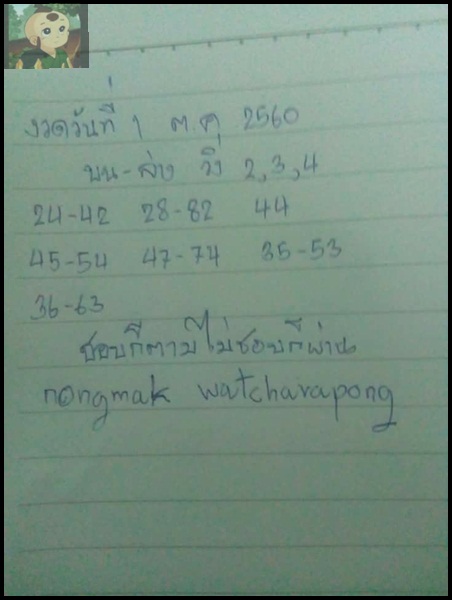 งวดวันที่ 1 ต.ค 2560
บน-ล่าง วิ่ง 2,3,4
24-42 28-82 44
45-54 47-74 35-53
36-63
ชอบก็ตามไม่ชอบก็ผ่าน
nongmak watcharapong